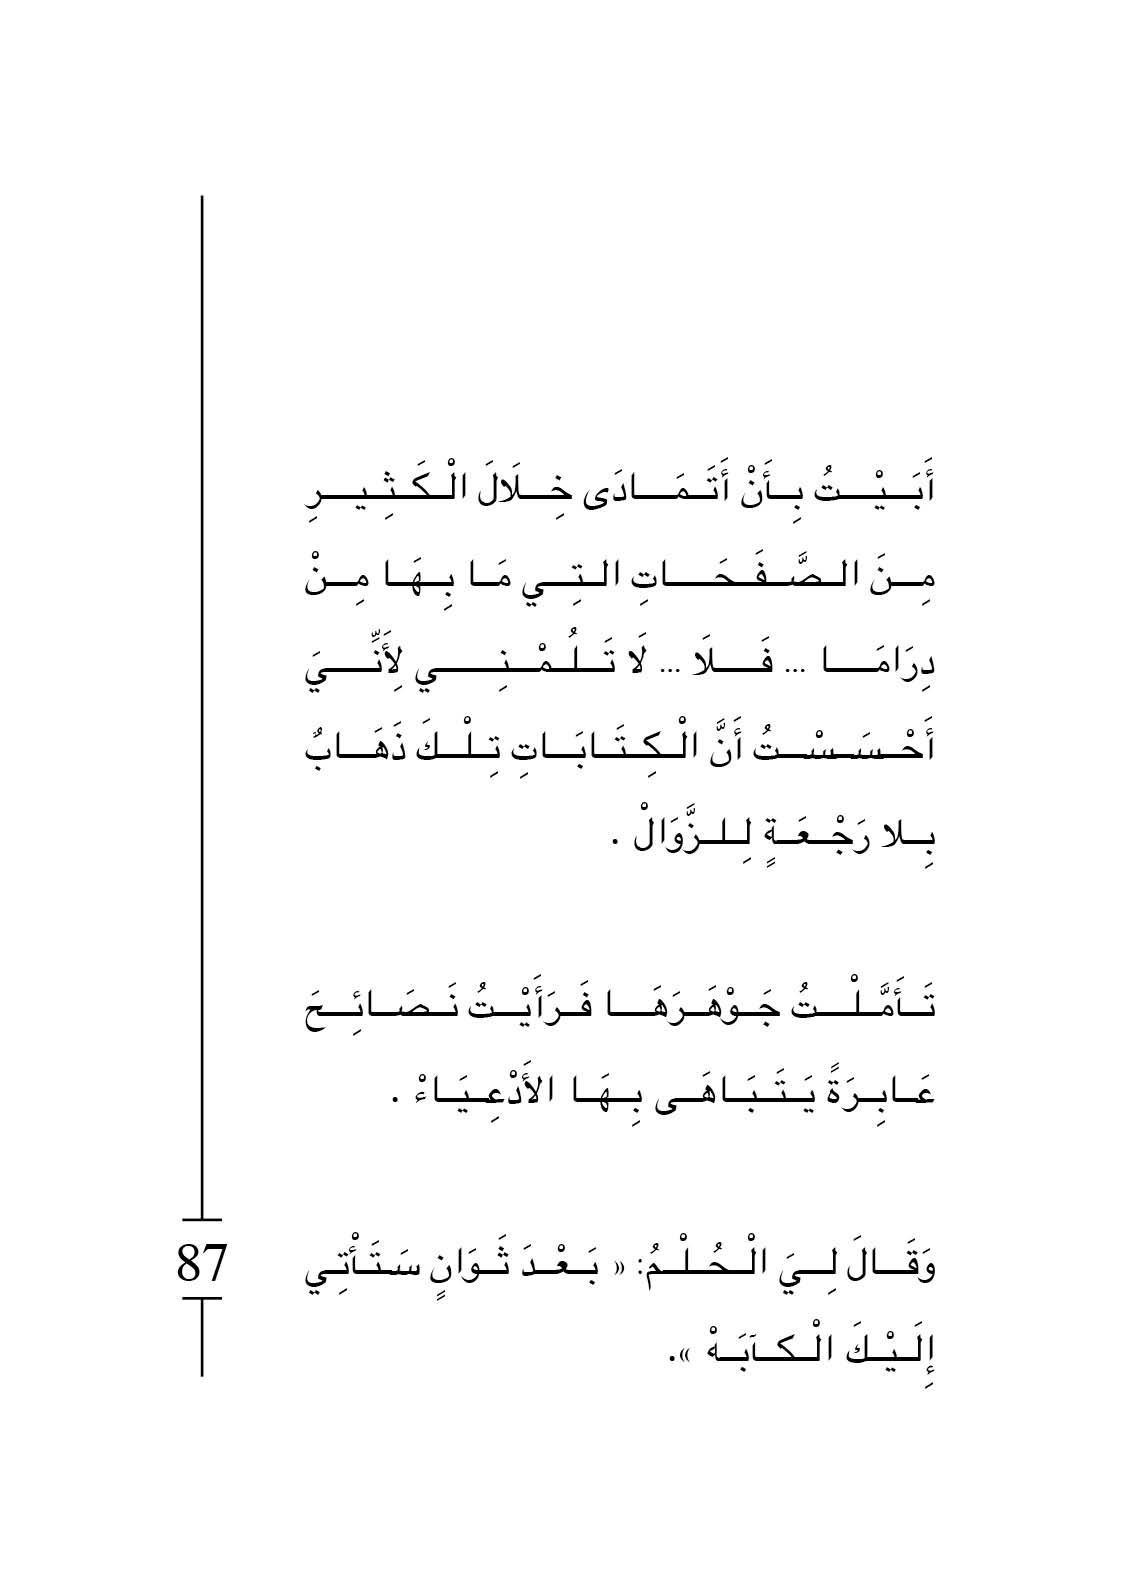 أَبَيْتُ بِأَنْ أَتَمَادَى خِلَالَ الْكَثِيرِ
مِنَ الصَّفَحَاتِ التِي مَا بِهَا مِنْ
دِرَامَا ... فَلَا ... لَا تَلُمْنِي لِأَنِّيَ
أَحْسَسْتُ أَنَّ الْكِتَابَاتِ تِلْكَ ذَهَابٌ
بِلا رَجْعَةٍ لِلزَّوَالْ .
تَأَمَّلْتُ جَوْهَرَهَا فَرَأَيْتُ نَصَائِحَ
عَابِرَةً يَتَبَاهَى بِهَا الأَدْعِيَاءْ .
وَقَالَ لِيَ الْحُلْمُ: « بَعْدَ ثَوَانٍ سَتَأْتِي
إِلَيْكَ الْكآبَهْ ».
87